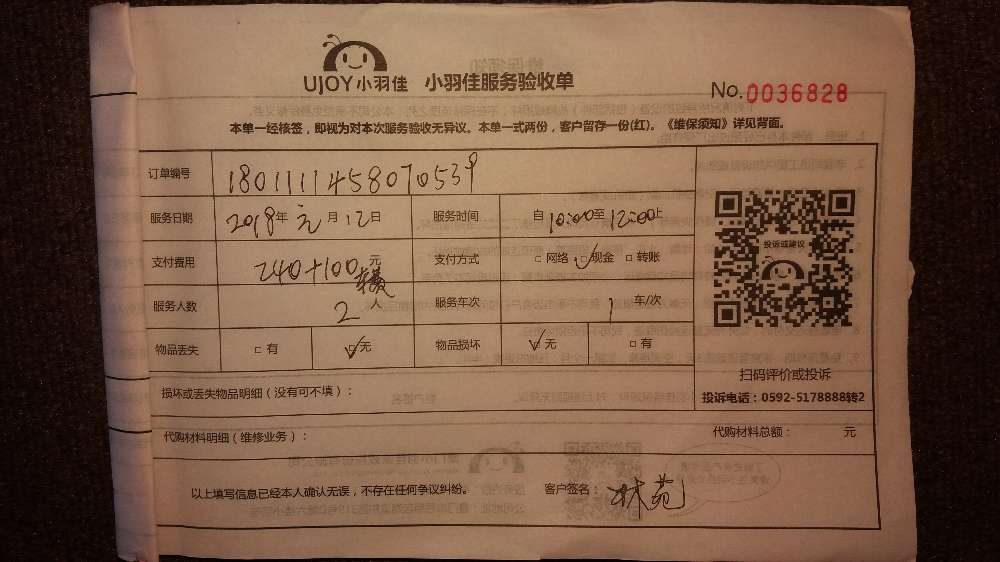 UJOY小羽佳 小羽佳服务验收单
No. 0036828
本单一经核签，即视为对本次服务验收无异议。本单一式两份，客户留存一份(红)。《维保须知》详见背面。
订单编号 180111145807 0539
服务日期 2018年 元 月 12日 服务时间 自 10:00至 12:00止
支付费用 240+100元 支付方式 □ 网络 □现金 □ 转账
服务人数 2 人 服务车次 1 车/次
物品丢失 □ 有 □无 物品损坏 □ 无 □ 有
投诉或建议
扫码评价或投诉
投诉电话：0592-5178888转2
损坏或丢失物品明细（没有可不填）：
代购材料明细（维修业务）： 代购材料总额： 元
以上填写信息已经本人确认无误，不存在任何争议纠纷。 客户签名： 林苑